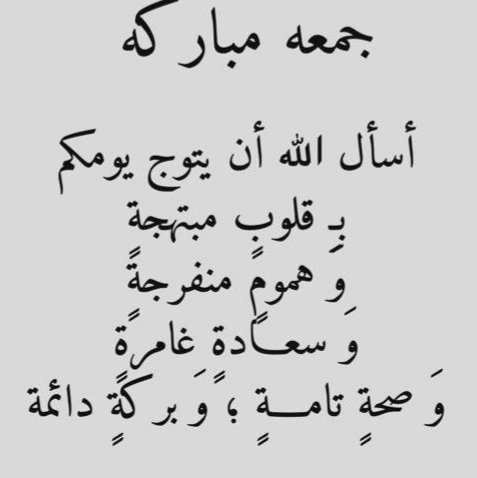 جمعه مباركه
أسأل الله أن يتوج يومكم
بِـ قلوبٍ مبتهجةٍ
وَ همومٍ منفرجةٍ
وَ سعـــادةٍ غامرةٍ
وَ صحةٍ تامـــةٍ ؛ وَ بركةٍ دائمة